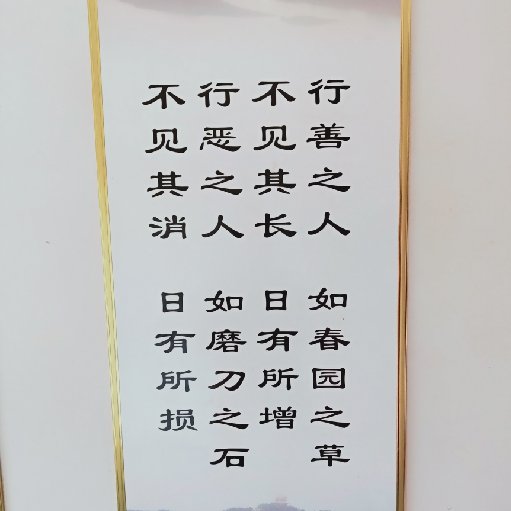 行善之人 如春园之草
不见其长 日有所增
行恶之人 如磨刀之石
不见其消 日有所损